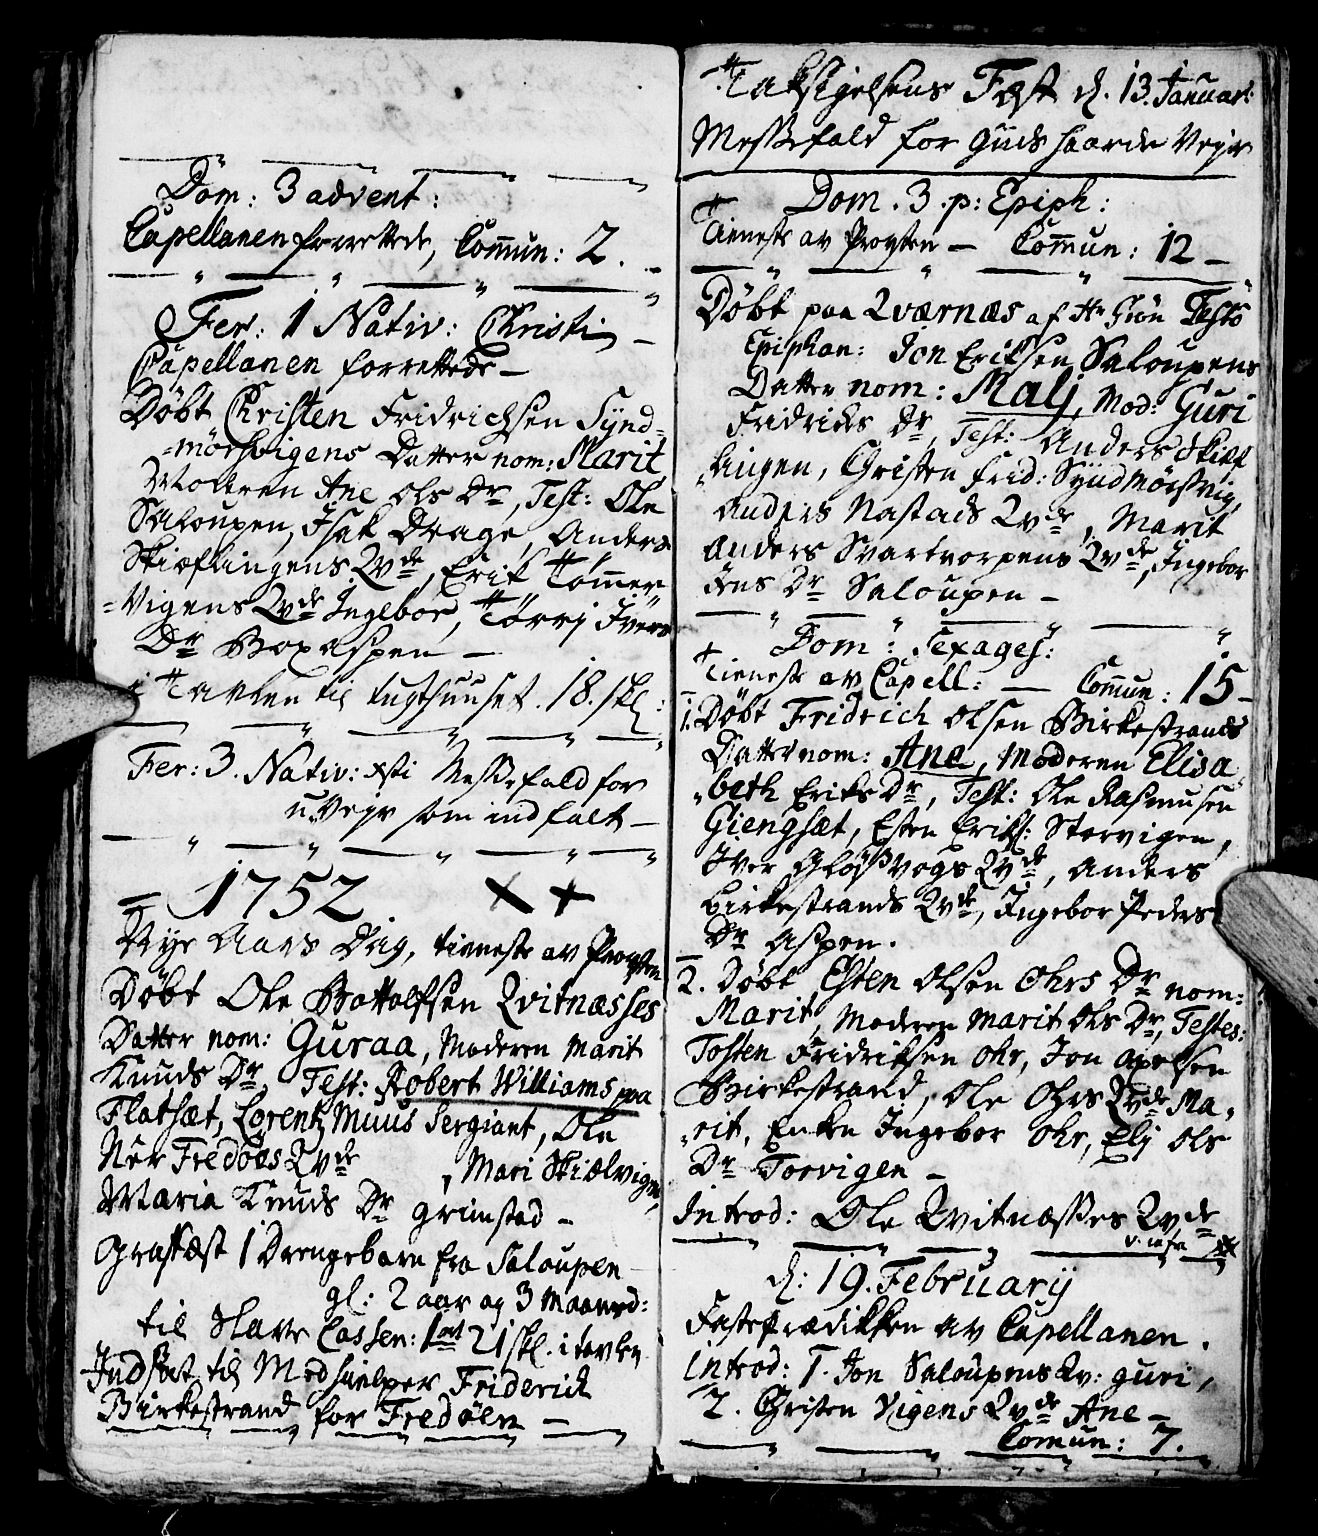 Dom: 3 advent:
Capellanen forrettede, Commun: 2.
Fer: 1 Nativ: Christi
Capellanen forrettede
Døbt Christen Fridrichsen Synd-
mörsvigens Datter nom: Marit
Moderen Ane Ols Dr, Test: Ole
Saloupen, Isak Drage, Anders
Skieflingens Qvde, Erik Tømmer-
vigens Qvde Ingebor, Törrj Ivers
Dr Boxaspen
i Tavlen til tugthuuset. 18. skl:
Fer: 3. Nativ: xsti Messefald for
uVeyr som indfalt
1752
Nye Aars Dag, tieneste av Provsten
Døbt Ole Battolfsen Qvitnæsses
Datter nom: Guraa, Moderen Marit
Knuds Dr, Test: Robert Williams paa
Flatsæt, Lorentz Muus Sergiant, Ole
Ner Fredöes Qvde, Mari Skiælvigen,
Maria Knuds Dr Grimstad
Grafkæst 1 Drengebarn fra Saloupen
gl: 2 aar og 3 Maaned:
til Slave Cassen: 1 ort 21 skl. i tavlen
Indsat til Medhielper Friderich
Birkestrand for Fredöen
Taksigelsens Fæst d. 13. Januar:
Messefald for Guds haarde Veyr
Dom. 3. p: Epiph:
Tieneste av Provsten Commun: 12
Døbt paa Qværnæs af Hr Jün Festo
Epiphan: Jon Eriksen Saloupens
Datter nom: Malj, Mod: Guri
Fridrichs Dr, Test: Anders Skief
lingen, Christen Frid: Syndmörsvig,
Anders Nastads Qvde, Marit
Anders Svartvorpens Qvde, Ingebor
Jens Dr Saloupen
Dom: Sexages:
Tieneste av Capell: Commun: 15
1. Døbt Fridrich Olsen Birkestrands
Datter nom: Ane, Moderen Elisa
beth Eriks Dr, Test: Ole Rasmusen
Giengsæt, Esten Eriks: Storvigen,
Iver Gløsvogs Qvde, Anders
Birkestrands Qvde, Ingebor Peders
Dr Aspen.
2. Døbt Esten Olsen Ohrs Dr nom:
Marit, Moderen Marit Ols Dr, Testes:
Tosten Fridriksen Ohr, Jon Apelsen
Birkestrand, Ole Ohrs Qvde Ma-
rit, Enken Ingebor Ohr, Elj Ols
Dr Torvigen
Introd: Ole Qvitnæsses Qvde
v. infra
d: 19. Februarij
Fasteprædikken av Capellanen.
Introd: 1. Jon Saloupens Qv: Guri,
2. Christen Vigens Qvde Ane
Comun: 7.